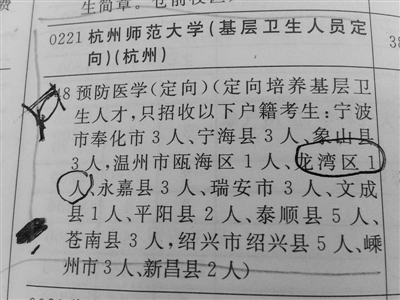 生简章。
0221 杭州师范大学(基层卫生人员定
向)(杭州)
48 预防医学(定向)(定向培养基层卫
生人才,只招收以下户籍考生:宁波
市奉化市3人、宁海县3人、象山县
3人,温州市瓯海区1人、龙湾区1
人、永嘉县3人、瑞安市3人、文成
县1人、平阳县2人、泰顺县5人、
苍南县3人,绍兴市绍兴县5人、嵊
州市3人、新昌县2人)